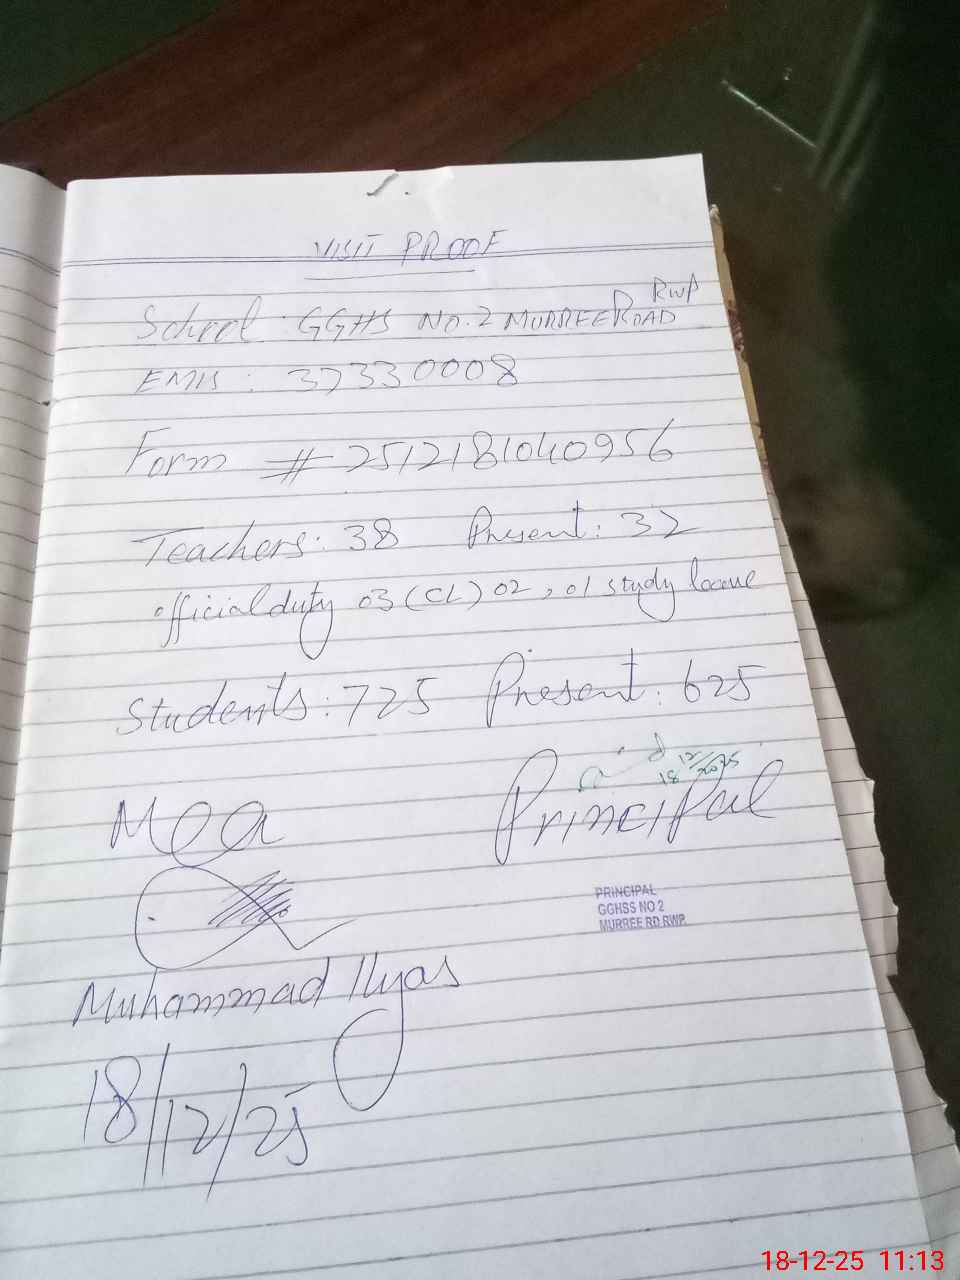 VISIT PROOF
RWP
School : GGHS NO.2 MURREE ROAD
EMIS : 37330008
Form # 2512181040956
Teachers: 38 Present: 32
official duty 03 (CL) 02, 01 study leave
Students: 725 Present: 625
18/12/2025
MEA Principal
PRINCIPAL
GGHSS NO 2
MURREE RD RWP.
Muhammad Ilyas
18/12/25
18-12-25 11:13